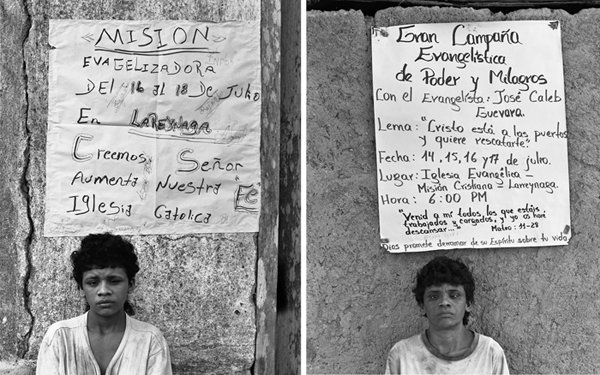 MISION
EVAGELIZADORA
DEL 16 al 18 DE JULIO
En LAREYNAGA
Creemos Señor
Aumenta Nuestra FE
Iglesia Catolica
Gran Campaña
Evangelística
de Poder y Milagros
Con el Evangelista: José Caleb
Guevara.
Lema: "Cristo está a las puertas
y quiere rescatarte".
Fecha: 14, 15, 16 y 17 de julio.
Lugar: Iglesia Evangélica -
Misión Cristiana - Lareynaga.
Hora: 6:00 PM
"Venid a mi todos, los que estáis
trabajados y cargados, y yo os haré
descansar..." Mateo: 11-28
Dios promete derramar de su Espíritu sobre tu vida